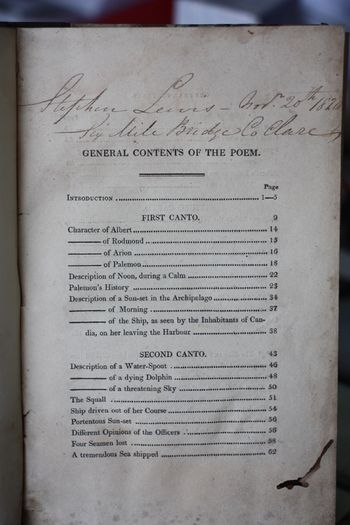 Stephen Lewis – Novr. 20th
Six Mile Bridge Co Clare
GENERAL CONTENTS OF THE POEM.
Page
INTRODUCTION 1—5
FIRST CANTO. 9
Character of Albert 14
——— of Rodmond 15
——— of Arion 16
——— of Palemon 18
Description of Noon, during a Calm 22
Palemon's History 23
Description of a Sun-set in the Archipelago 34
——— of Morning 37
——— of the Ship, as seen by the Inhabitants of Can-
dia, on her leaving the Harbour 38
SECOND CANTO. 43
Description of a Water-Spout 46
——— of a dying Dolphin 48
——— of a threatening Sky 50
The Squall 51
Ship driven out of her Course 54
Portentous Sun-set 56
Different Opinions of the Officers 56
Four Seamen lost 58
A tremendous Sea shipped 62